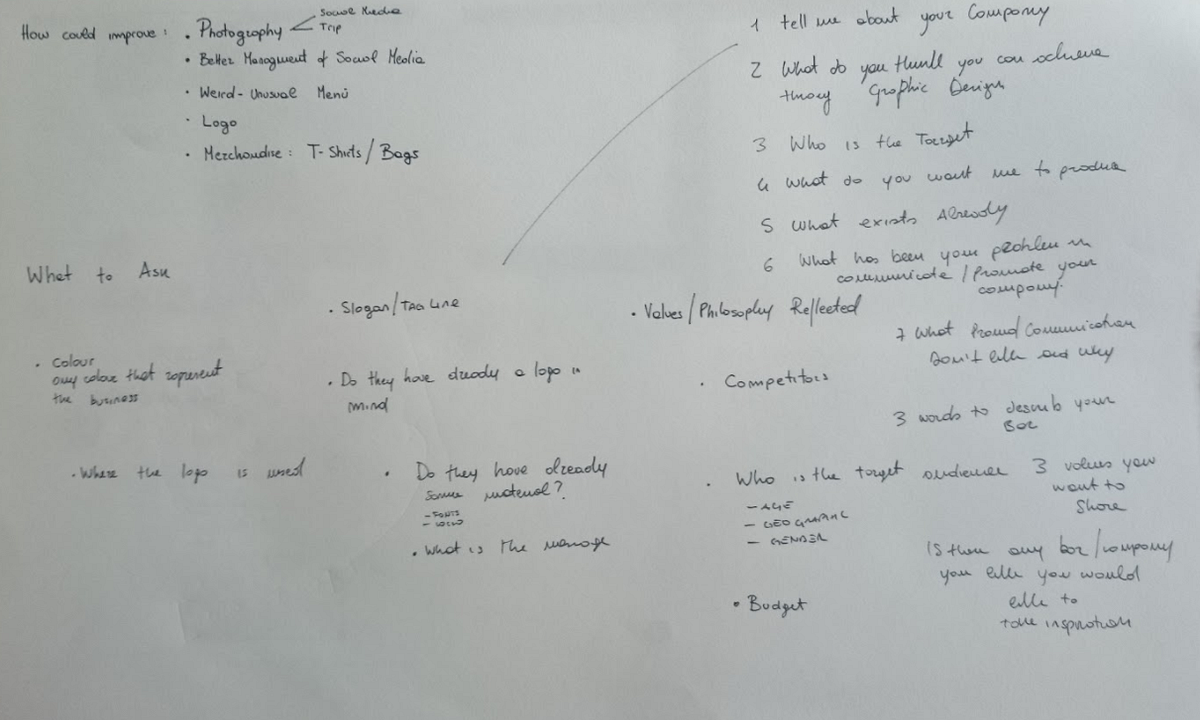 How could improve :
• Photography
Social Media
Trip
• Better Managment of Social Media
• Weird-Unusual Menù
• Logo
• Merchandise : T-Shirts / Bags
1 tell me about your Company
2 What do you think you can achieve
Graphic Design
3 Who is the Target
4 What do you want me to produce
5 What exists Already
6 What has been your problem in
communicate / Promote your
company.
7 What Communication
Don't like and why
3 words to describ your
Bar
3 values you
want to
Share
Is ther any bar / company
you like you would
like to
take inspiration
What to Ask
• Slogan / Tag Line
• Values / Philosophy Reflected
• Colour
any colour that represent
the business
• Do they have already a logo in
mind
• Competitors
• Where the logo is used
• Do they have already
some material?
- FONTS
- LOGO
• What is the
• Who is the target audience
- AGE
- GEOGRAPHIC
- GENDER
• Budget